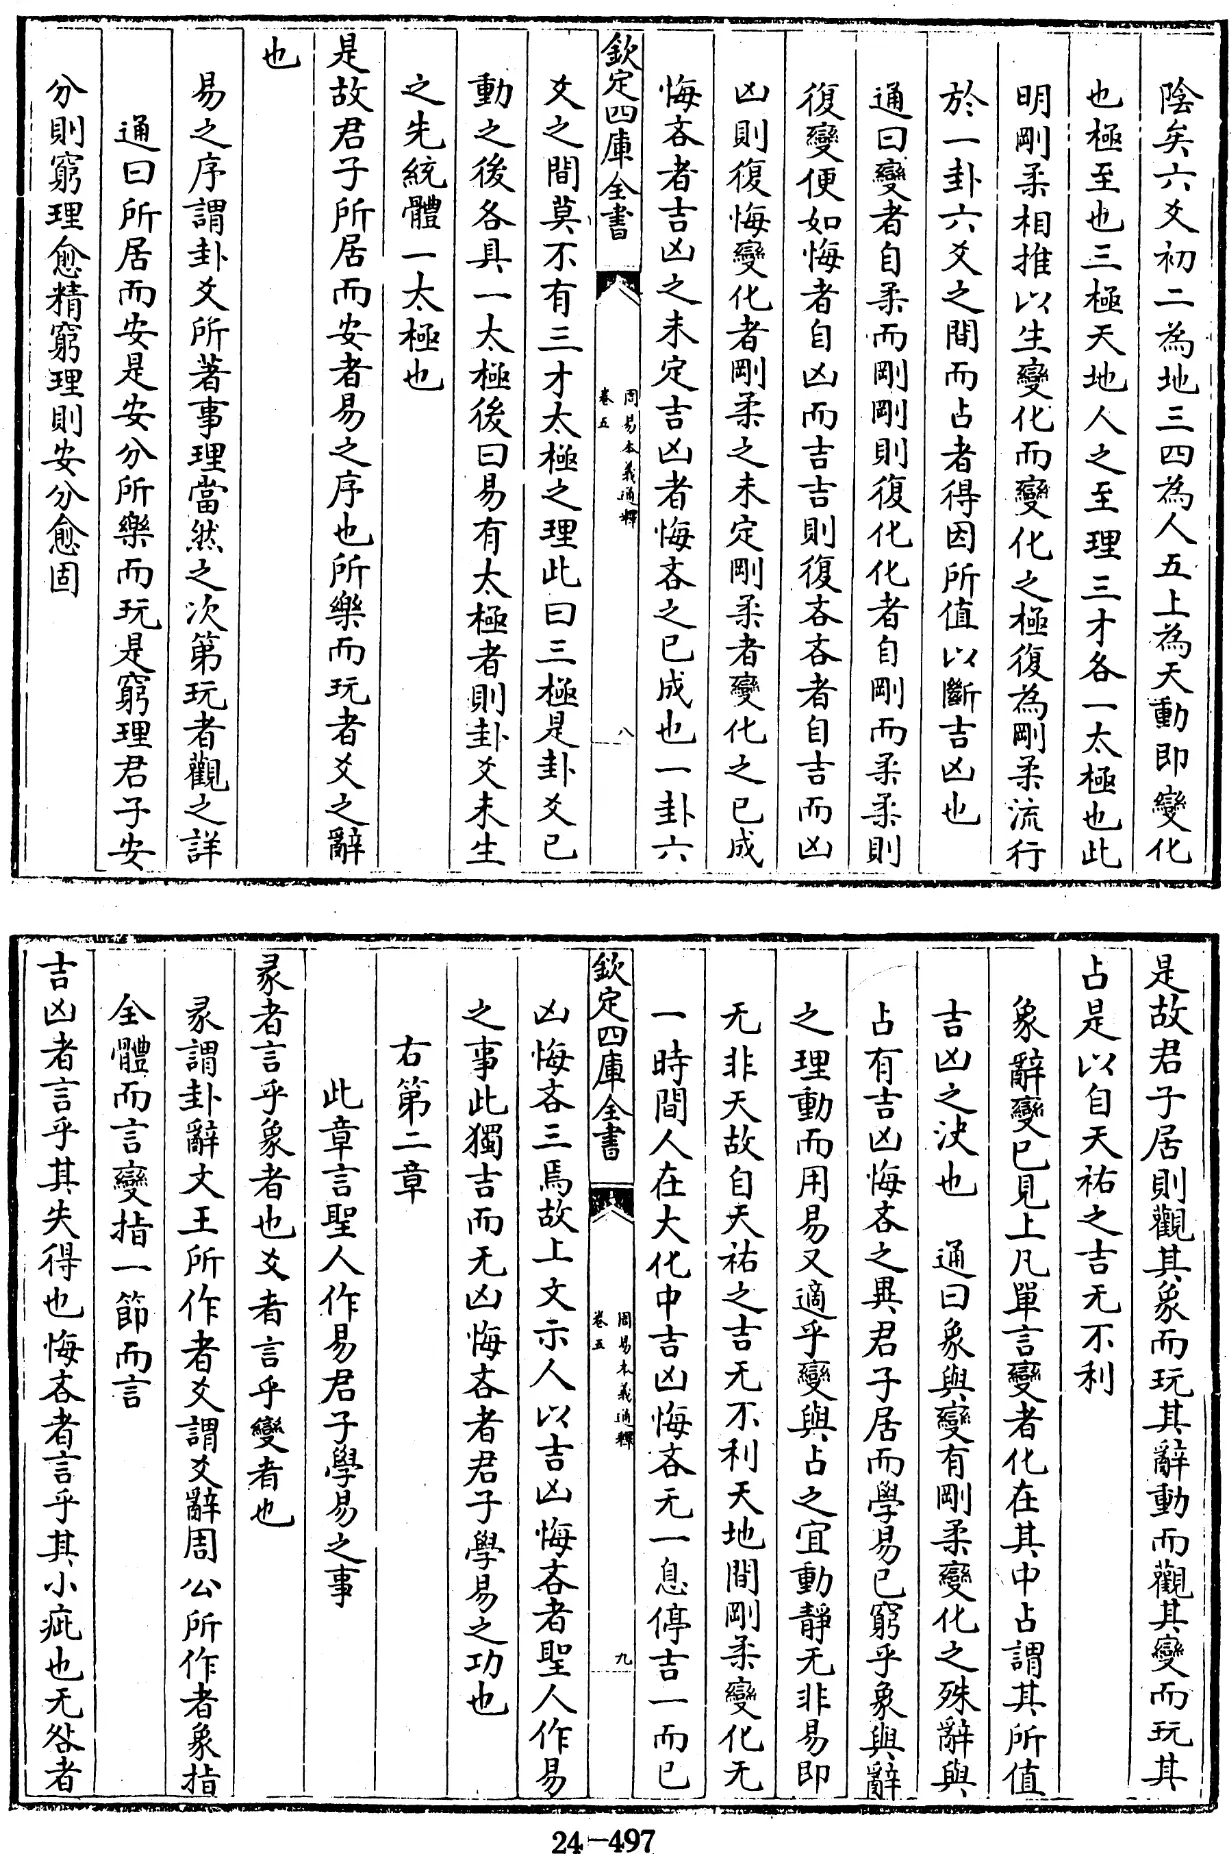 陰矣六爻初二為地三四為人五上為天動即變化
也極至也三極天地人之至理三才各一太極也此
明剛柔相推以生變化而變化之極復為剛柔流行
於一卦六爻之間而占者得因所值以斷吉凶也
通曰變者自柔而剛剛則復化化者自剛而柔柔則
復變便如悔者自凶而吉吉則復吝吝者自吉而凶
凶則復悔變化者剛柔之未定剛柔者變化之已成
悔吝者吉凶之未定吉凶者悔吝之已成也一卦六
欽定四庫全書
周易本義通釋
卷五
八
爻之間莫不有三才太極之理此曰三極是卦爻已
動之後各具一太極後曰易有太極者則卦爻未生
之先統體一太極也
是故君子所居而安者易之序也所樂而玩者爻之辭
也
易之序謂卦爻所著事理當然之次第玩者觀之詳
通曰所居而安是安分所樂而玩是窮理君子安
分則窮理愈精窮理則安分愈固
是故君子居則觀其象而玩其辭動而觀其變而玩其
占是以自天祐之吉无不利
象辭變已見上凡單言變者化在其中占謂其所值
吉凶之決也 通曰象與變有剛柔變化之殊辭與
占有吉凶悔吝之異君子居而學易已窮乎象與辭
之理動而用易又適乎變與占之宜動靜无非易即
无非天故自天祐之吉无不利天地間剛柔變化无
一時間人在大化中吉凶悔吝无一息停吉一而已
欽定四庫全書
周易本義通釋
卷五
九
凶悔吝三焉故上文示人以吉凶悔吝者聖人作易
之事此獨吉而无凶悔吝者君子學易之功也
右第二章
此章言聖人作易君子學易之事
彖者言乎象者也爻者言乎變者也
彖謂卦辭文王所作者爻謂爻辭周公所作者象指
全體而言變指一節而言
吉凶者言乎其失得也悔吝者言乎其小疵也无咎者
24—497